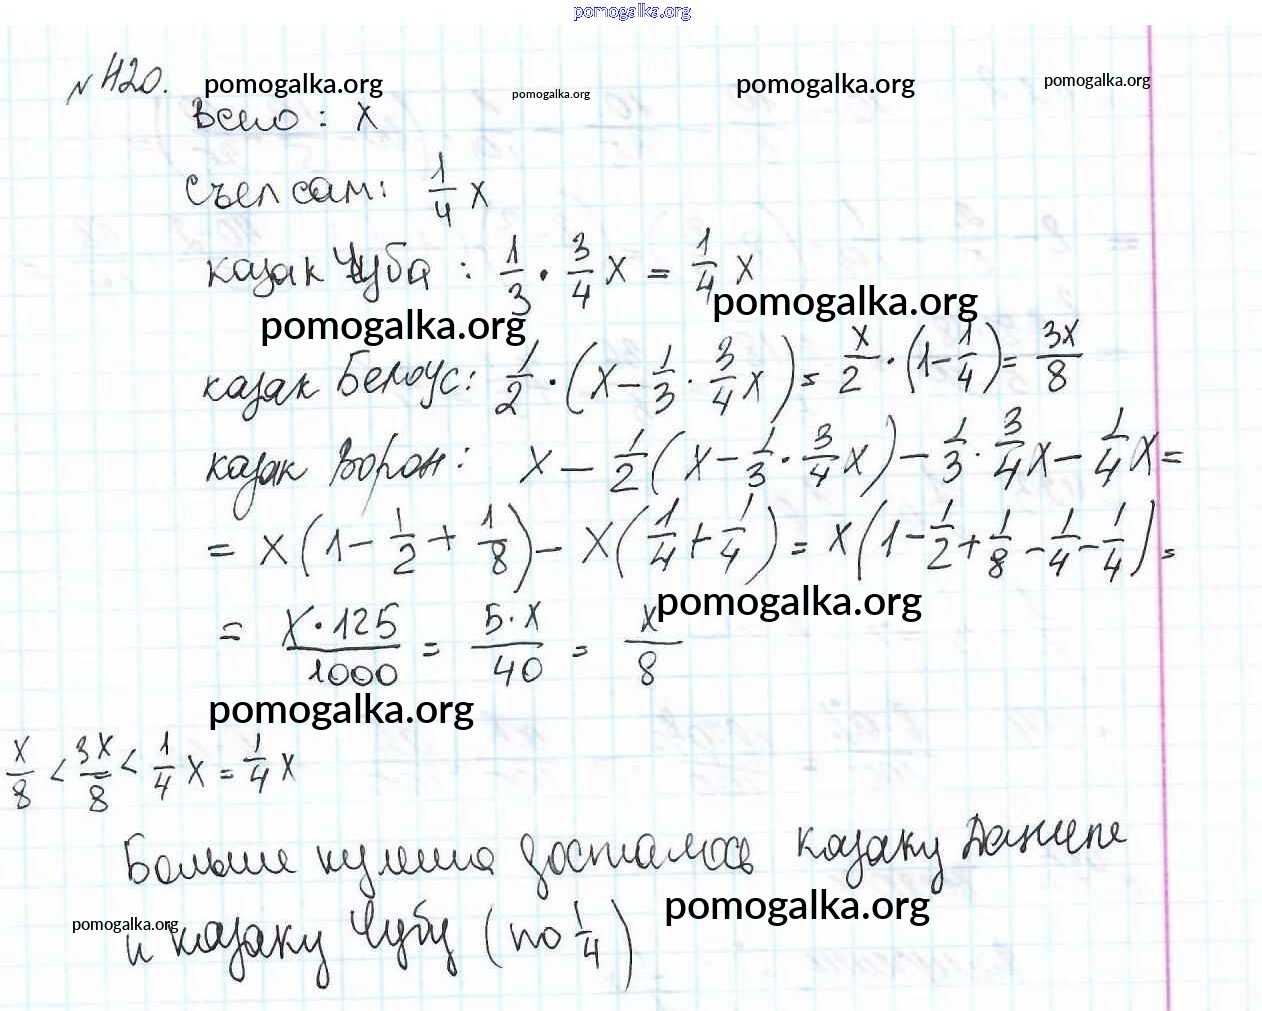 pomogalka.org
№ 420. pomogalka.org pomogalka.org pomogalka.org pomogalka.org
Всего : x
Съел сам: 1/4 x
казак Чуба : 1/3 · 3/4 x = 1/4 x
pomogalka.org pomogalka.org
казак Белоус: 1/2 · (x - 1/3 · 3/4 x) = x/2 · (1 - 1/4) = 3x/8
казак Ворон: x - 1/2 (x - 1/3 · 3/4 x) - 1/3 · 3/4 x - 1/4 x =
= x (1 - 1/2 + 1/8) - x (1/4 + 1/4) = x (1 - 1/2 + 1/8 - 1/4 - 1/4) =
pomogalka.org
= x·125/1000 = 5·x/40 = x/8
pomogalka.org
x/8 < 3x/8 < 1/4 x = 1/4 x
Больше кулеша досталось казаку Даниле
pomogalka.org pomogalka.org
и казаку Чубу (по 1/4)